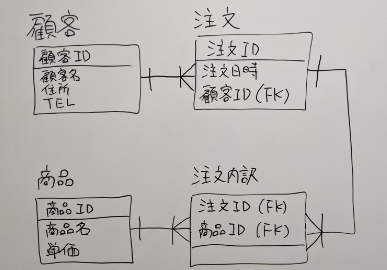 顧客
顧客ID
顧客名
住所
TEL
注文
注文ID
注文日時
顧客ID(FK)
商品
商品ID
商品名
単価
注文内訳
注文ID(FK)
商品ID(FK)